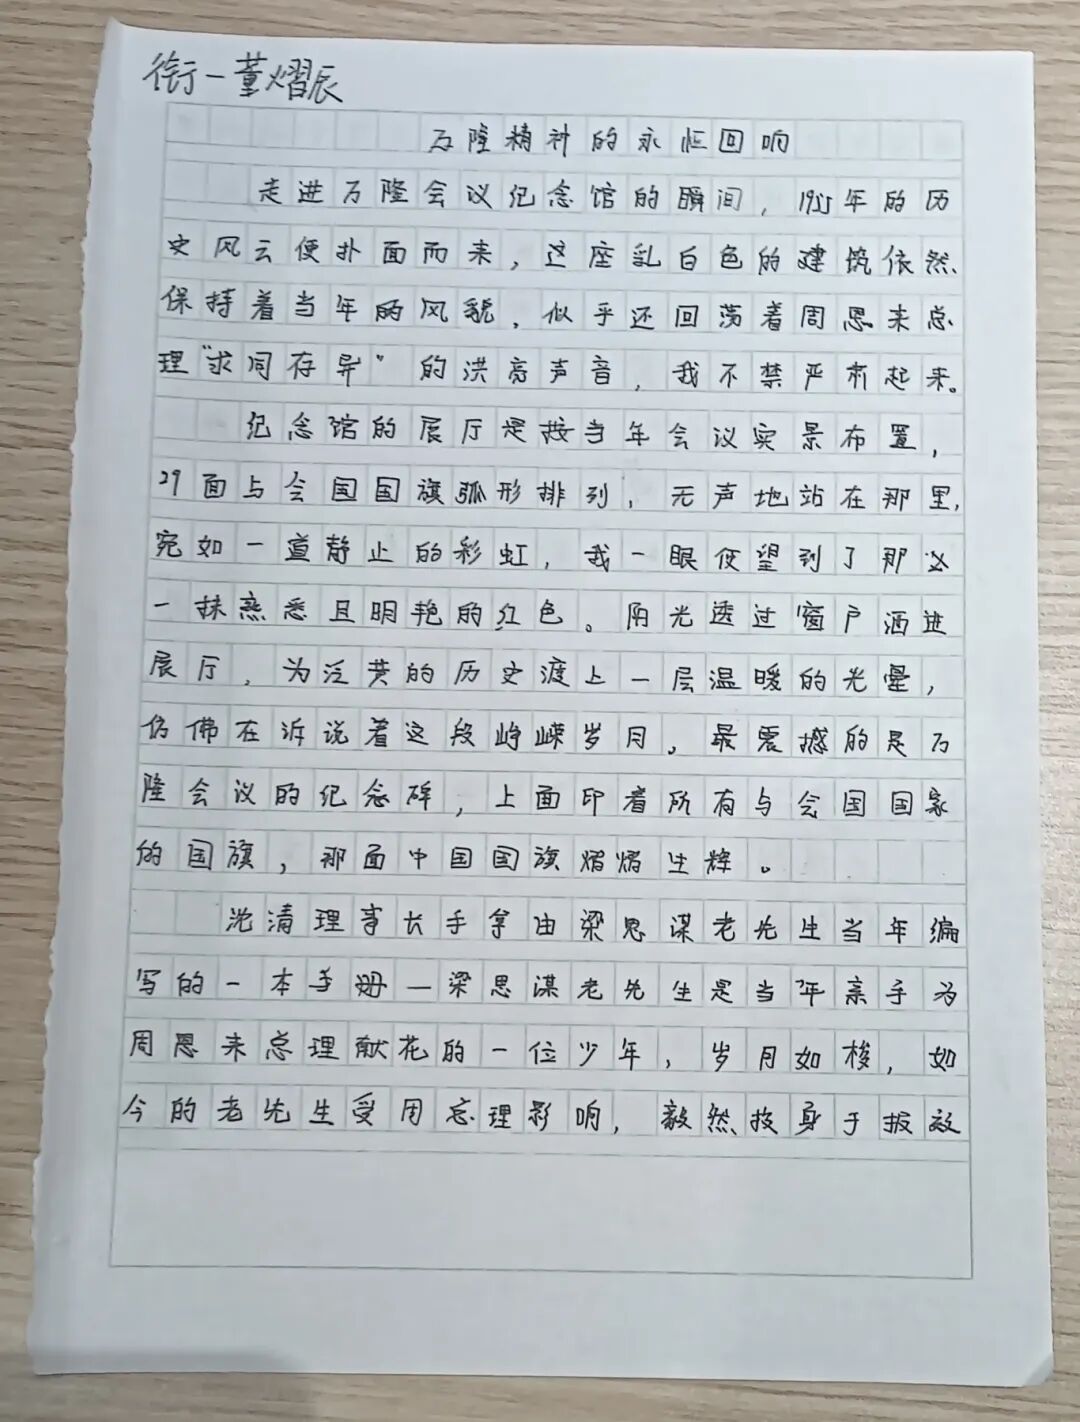 衔一董熠辰
万隆精神的永恒回响
走进万隆会议纪念馆的瞬间，1955年的历
史风云便扑面而来，这座乳白色的建筑依然
保持着当年的风貌，似乎还回荡着周恩来总
理“求同存异”的洪亮声音，我不禁严肃起来。
纪念馆的展厅是按当年会议实景布置，
29面与会国国旗弧形排列，无声地站在那里，
宛如一道静止的彩虹，我一眼便望到了那么
一抹熟悉且明艳的红色。阳光透过窗户洒进
展厅，为泛黄的历史渡上一层温暖的光晕，
仿佛在诉说着这段峥嵘岁月。最震撼的是万
隆会议的纪念碑，上面印着所有与会国国家
的国旗，那面中国国旗熠熠生辉。
沈清理事长手拿由梁思谋老先生当年编
写的一本手册—梁思谋老先生是当年亲手为
周恩来总理献花的一位少年，岁月如梭，如
今的老先生受周总理影响，毅然投身于报效